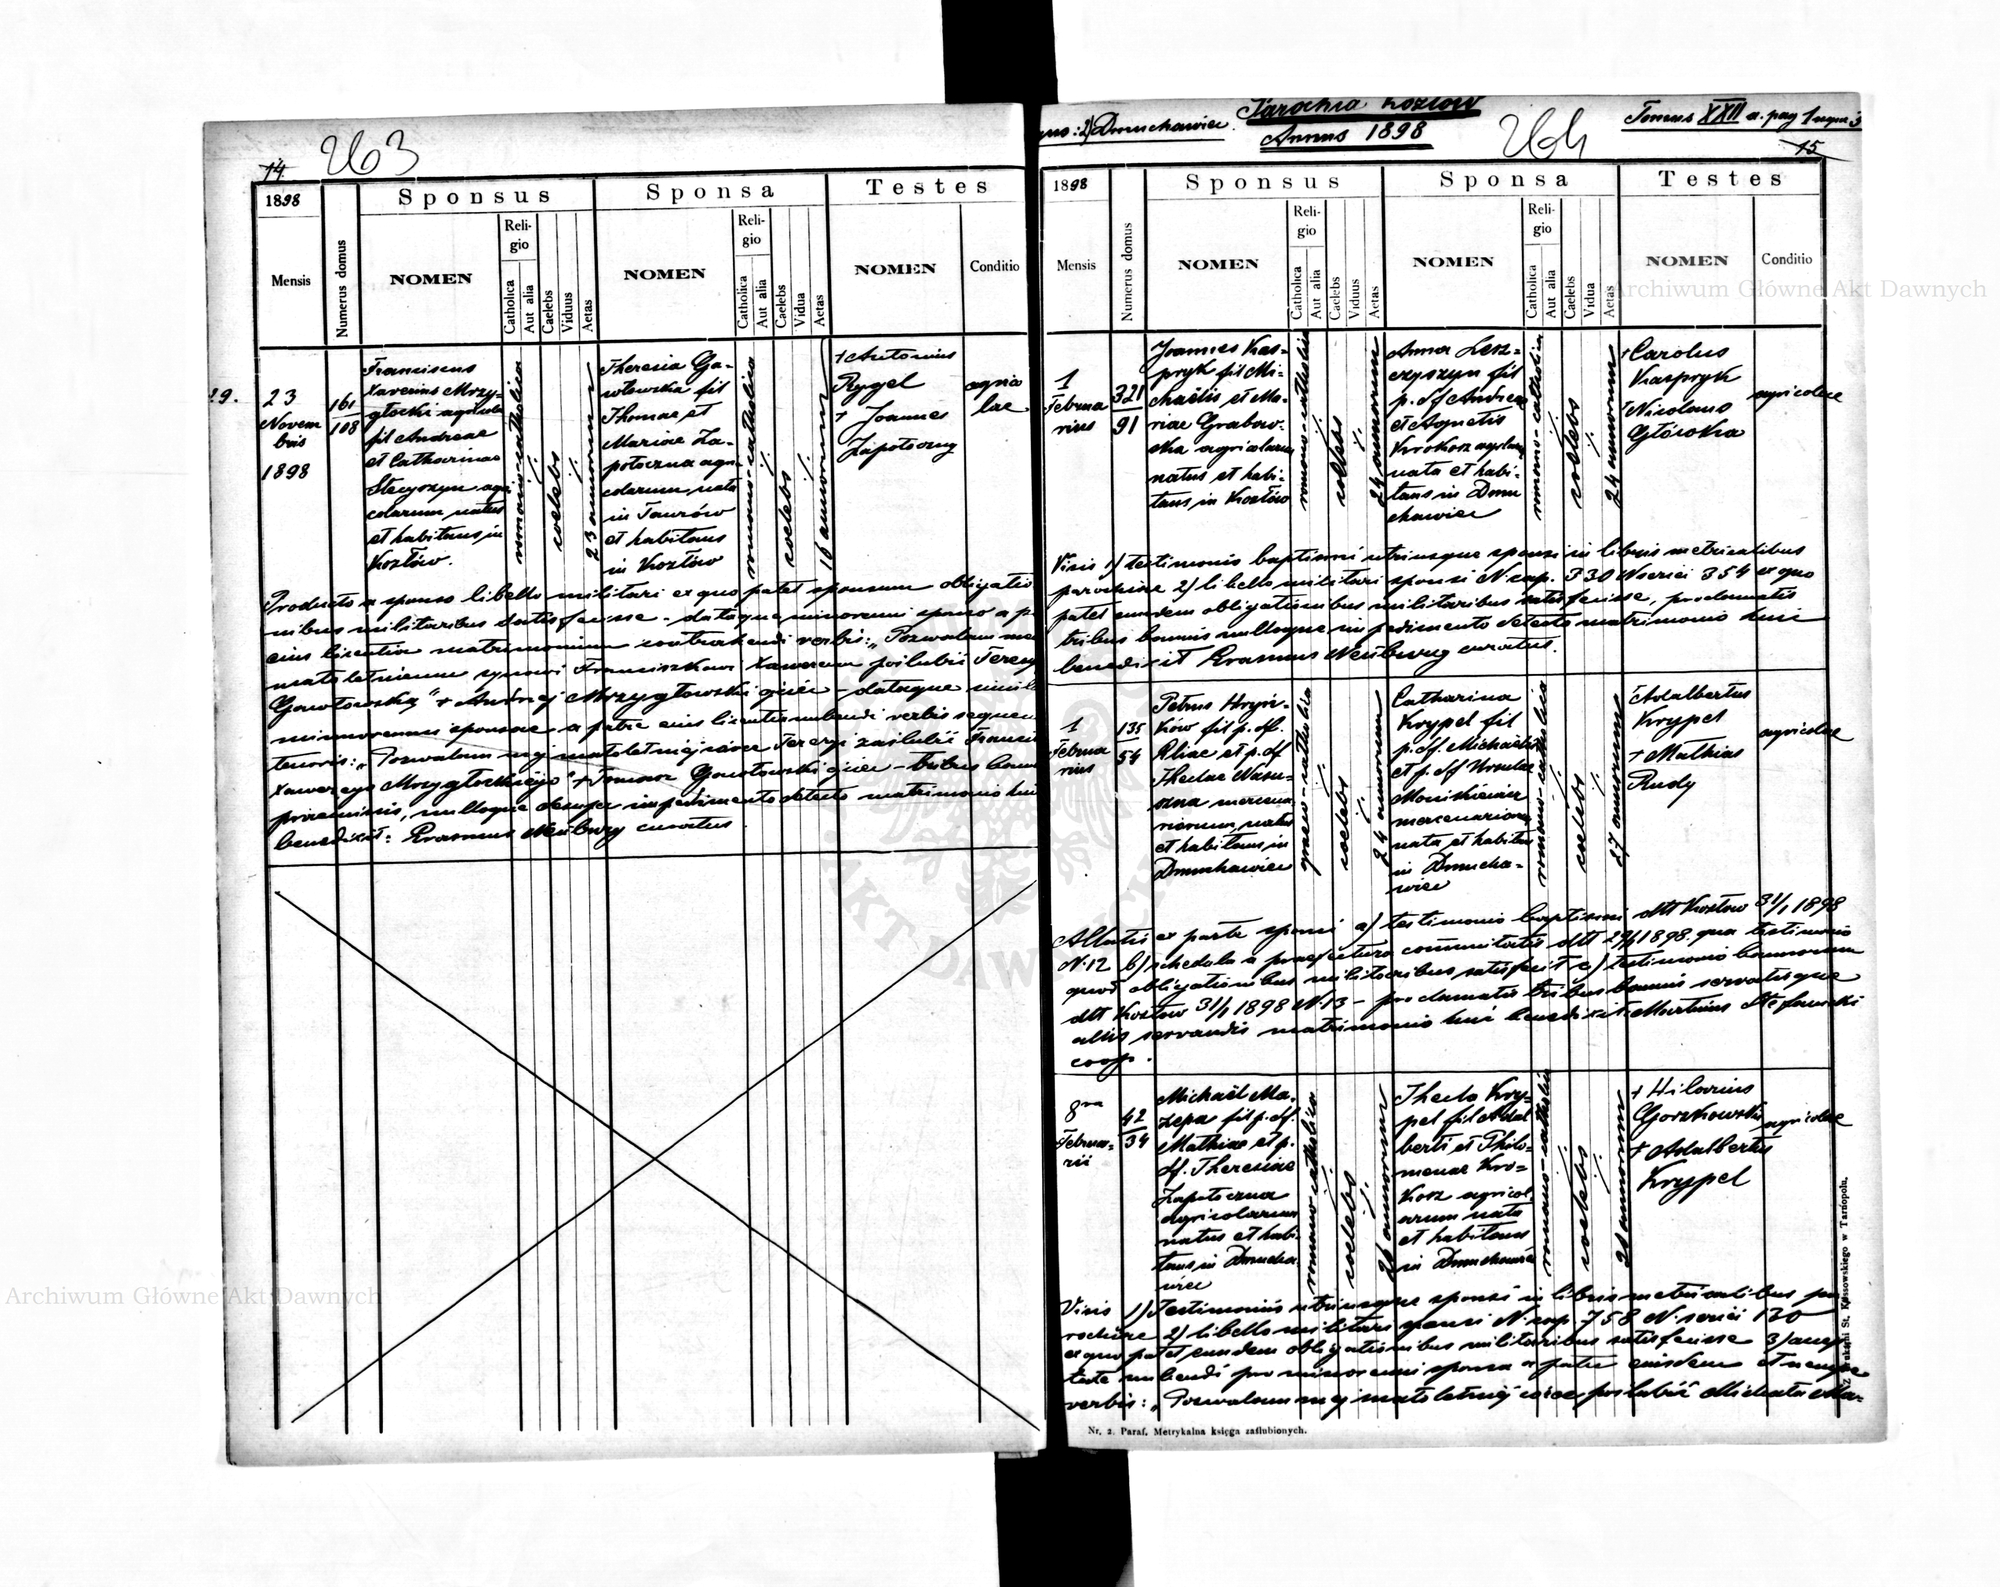 14
263
1898
Mensis
Numerus domus
Sponsus
NOMEN
Religio
Catholica
Aut alia
Caelebs
Viduus
Aetas
Sponsa
NOMEN
Religio
Catholica
Aut alia
Caelebs
Vidua
Aetas
Testes
NOMEN
Conditio
23
Novem
bris
1898
161
108
Franciscus
Xaverius Mrzy-
głocki agricola
fil Andreae
et Catharinae
Stecyszyn agri
colarum natus
et habitans in
Kozłów.
romano-catholica
coelebs
23 annorum
Theresia Ga-
włowska fil
Thomae et
Mariae Za-
potoczna agri
colarum nata
in Taurów
et habitans
in Kozłów
romano-catholica
coelebs
annorum
+ Antonius
Rygel
+ Joannes
Zapotoczny
agrico
lae
Producto a sponso libello militari ex quo patet sponsum obligatio
nibus militaribus satisfecisse - dataque minorenni sponso a p
eius licentia matrimonium contrahendi verbis: „Pozwalam me
małoletniemu synowi Franciszkowi Xaweremu poślubić Teresę
+ Andrzej Mrzygłowski ojciec - dataque simil
minorenni sponsae a patre eius licentia nubendi verbis sequen
tenoris: „Pozwalam mej małoletniej córce Teresji zaślubić Franci
Xawerego Mrzygłockiego" + Tomasz Gawłowski ojciec - tribus bann
praemissis, nulloque desuper impedimento detecto matrimonio huic
benedixit: Erasmus Neuburg curatus
Parochia Kozłów
2) Dmuchawiec.
Annus 1898
264
Tomus XXII a. pag 1 usque 3
15
1898
Mensis
Numerus domus
Sponsus
NOMEN
Religio
Catholica
Aut alia
Caelebs
Viduus
Aetas
Sponsa
NOMEN
Religio
Catholica
Aut alia
Caelebs
Vidua
Aetas
Testes
NOMEN
Conditio
1
Februa
rius
321
91
Joannes Kas-
pryk fil Mi-
chaëlis et Ma-
riae Grabow-
ska agricolarum
natus et habi-
tans in Kozłów
romano-catholica
coelebs
24 annorum
Anna Lesz-
czyszyn fil
p. df Andreae
et Agnetis
Krokosz agricolarum
nata et habi-
tans in Dmu
chawiec
romano-catholica
coelebs
24 annorum
+ Carolus
Kaspryk
+ Nicolaus
Główka
agricolae
Visis 1) testimonio baptismi utriusque sponsi in libris metricalibus
parochiae 2) libello militari sponsi N. cap. 330 N seriei 354 ex quo
patet eundem obligationibus militaribus satisfecisse, proclamatis
tribus bannis nulloque impedimento detecto matrimonio huic
benedixit Erasmus Neuburg curatus.
1
Februa
rius
135
54
Petrus Hryń-
ków fil p. df.
Eliae et p. df
Theclae
mercena
riorum natus
et habitans in
Dmuchawiec
graeco-catholica
coelebs
24 annorum
Catharina
Krypel fil
p. df. Michaëlis
et p. df Ursulae
mercenariorum
nata et habitans
in Dmucha-
wiec
romano-catholica
coelebs
27 annorum
+ Adalbertus
Krypel
+ Mathias
Rudy
agricolae
Allatis ex parte sponsi a) testimonio baptismi dtt Kozłow 31/1 1898
N. 12 b) schedula a praefectura communitatis dtt 1898. qua testimonio
quod obligationibus militaribus satisfecit c) testimonio bannorum
dtt Kozłow 31/1 1898 N. 13 - proclamatis tribus bannis servatisque
aliis servandis matrimonio huic benedixit Martinus Stefanski
coop.
8va
Februa-
rii
42
34
Michaël Ma-
zepa fil p. df.
Mathiae et p.
df. Theresiae
Zapotoczna
agricolarum
natus et habi-
tans in Dmucha
wiec
romano-catholica
coelebs
annorum
Thecla Kry-
pel fil Adal
berti et Philo-
menae Kro-
kosz agricol
arum nata
et habitans
in Dmuchawiec
romano-catholica
coelebs
annorum
+ Hilarius
Gorzkowski
+ Adalbertus
Krypel
agricolae
Visis 1) Testimoniis utriusque sponsi in libris metricalibus pa
rochiae 2) libello militari sponsi N. cap. 758 N. seriei 130
ex quo patet eundem obligationibus militaribus satisfecisse 3)
nubendi pro minorenni sponsa a patre eiusdem
verbis: „Pozwalam mej małoletniej córce poślubić Michała Ma-
Nr. 2. Paraf. Metrykalna księga zaślubionych.
Z drukarni St. Kossowskiego w Tarnopolu.
Archiwum Główne Akt Dawnych
Archiwum Główne Akt Dawnych
AKT DAWNYCH